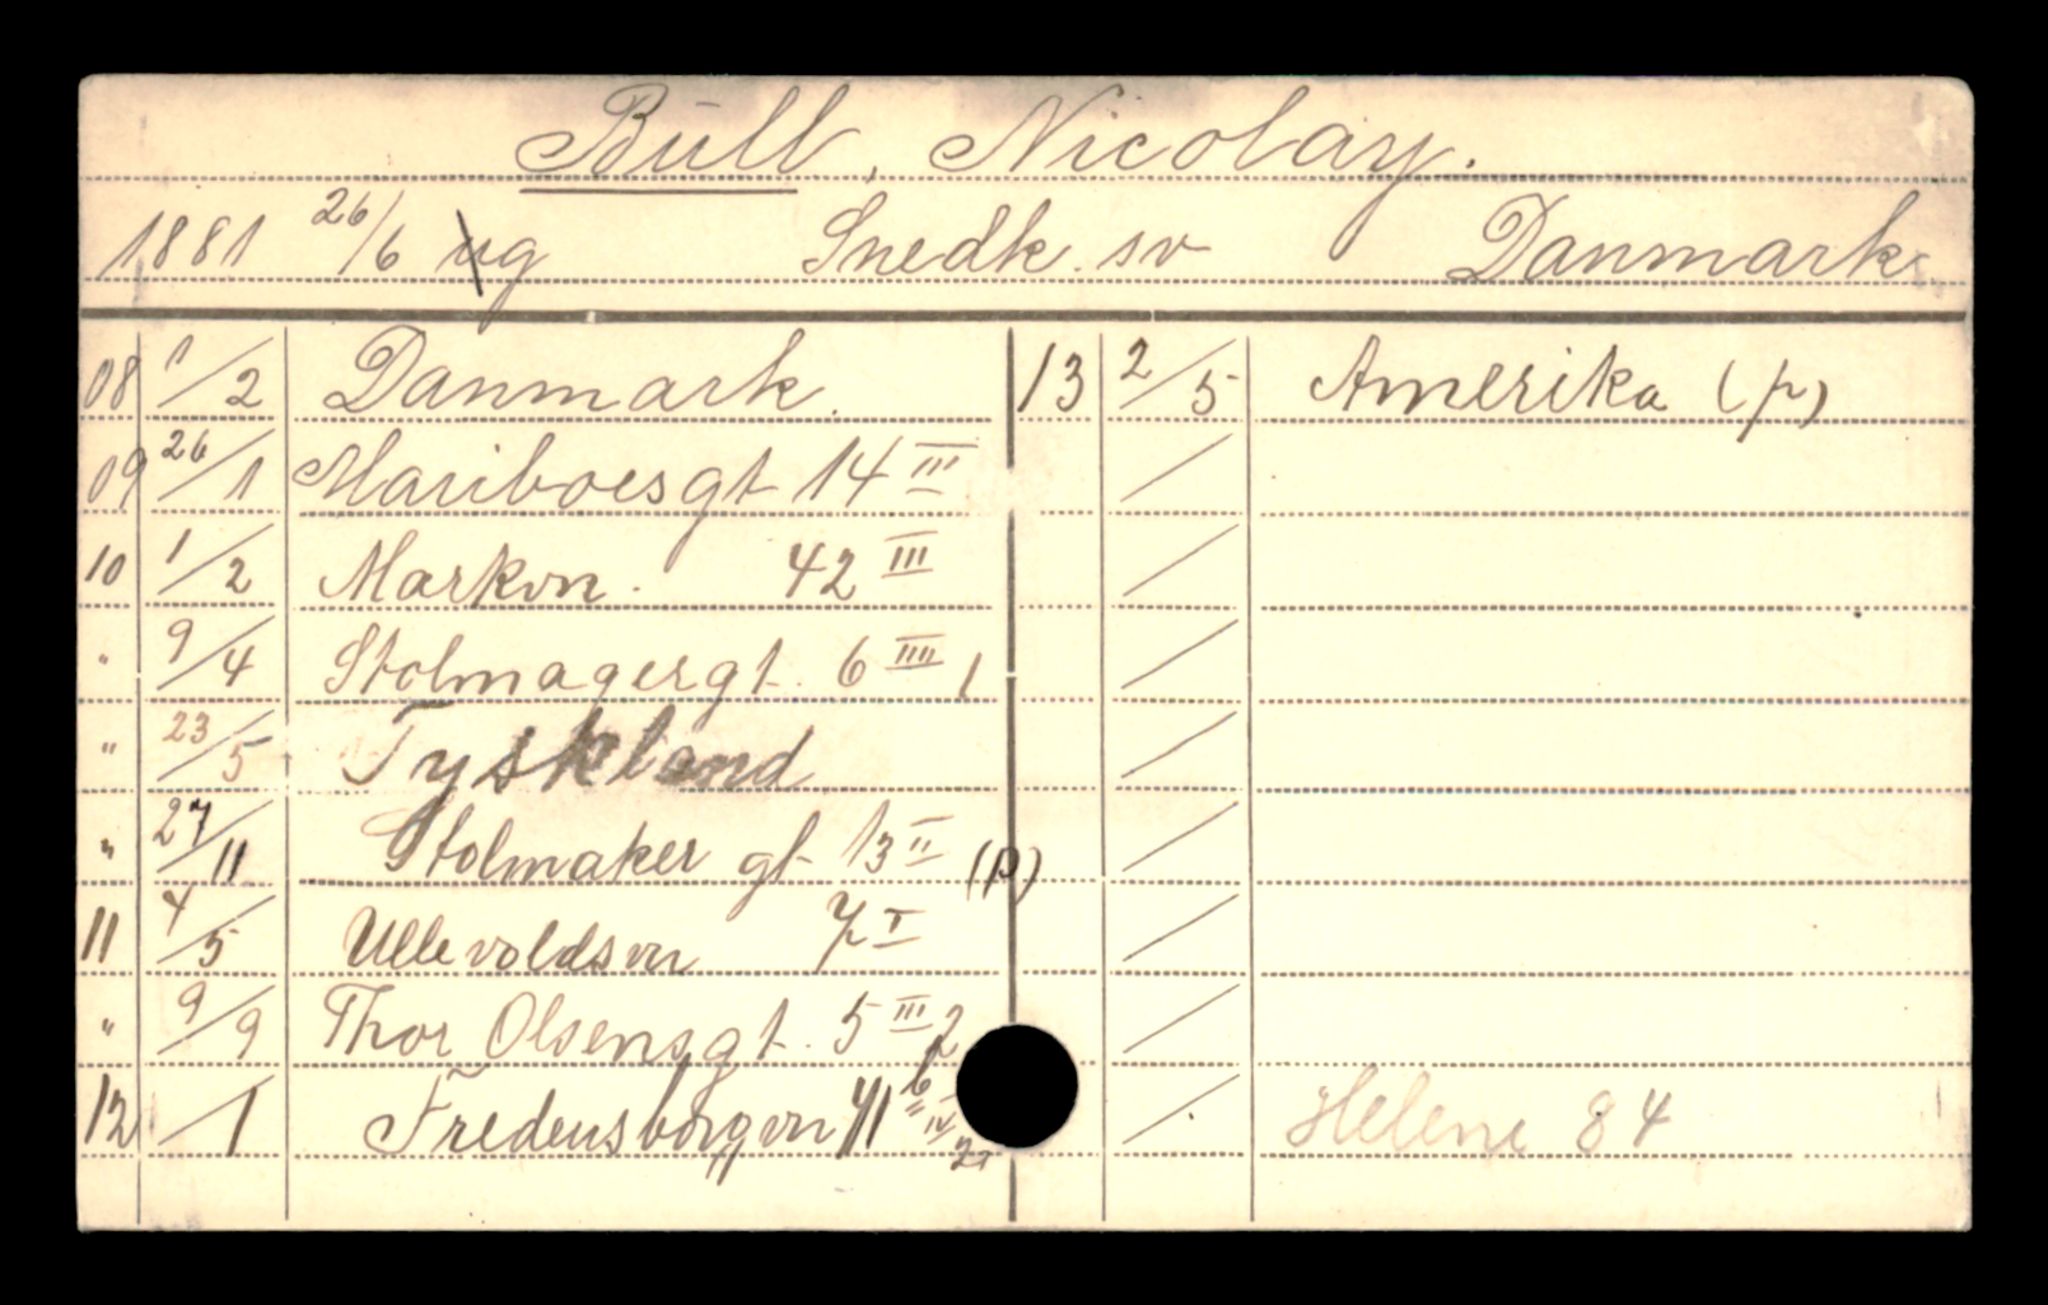 Bull, Nicolay.
1881 26/6 ug Snedk. sv Danmark
08 1/2 Danmark.
09 26/1 Mariboesgt 14 III
10 1/2 Markvn. 42 III
" 9/4 Stolmagergt. 6 IIII 1
" 23/5 Tyskland
" 27/11 Stolmaker gt 13 II (p)
11 4/5 Ullevoldsvn 7 I
" 9/9 Thor Olsensgt. 5 III 2
12 /1 Fredensborgvn 41 b IV
13 2/5 Amerika (p)
Helene 84